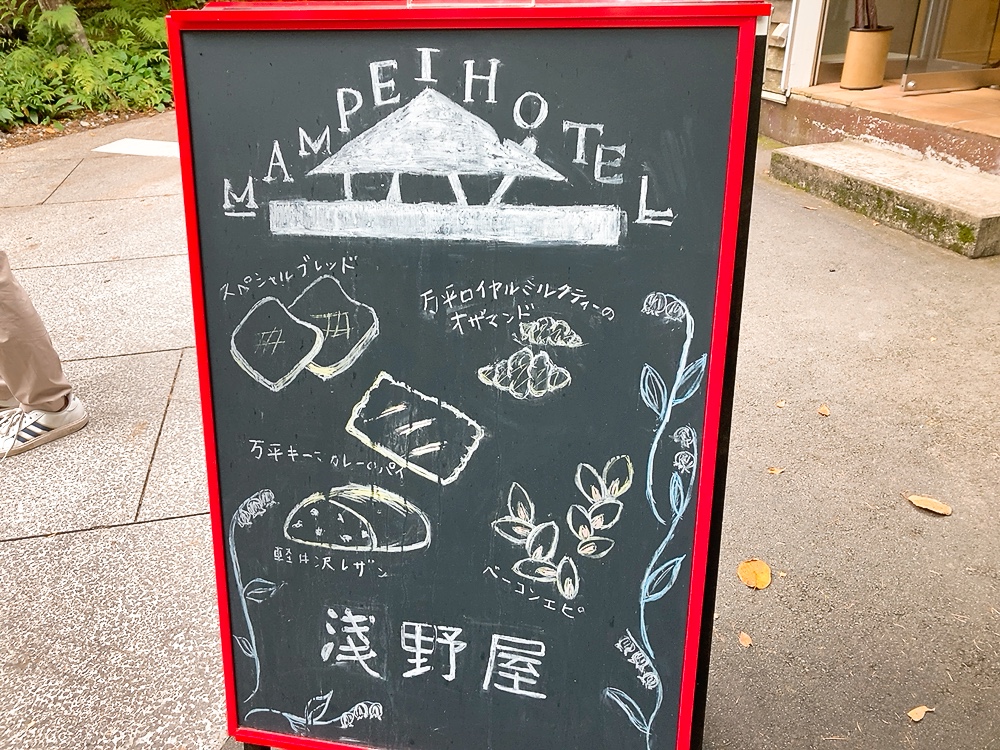 MAMPEI HOTEL
スペシャルブレッド
万平ロイヤルミルクティーの
オザマンド
万平キーマカレーのパイ
軽井沢レザン
ベーコンエピ
浅野屋